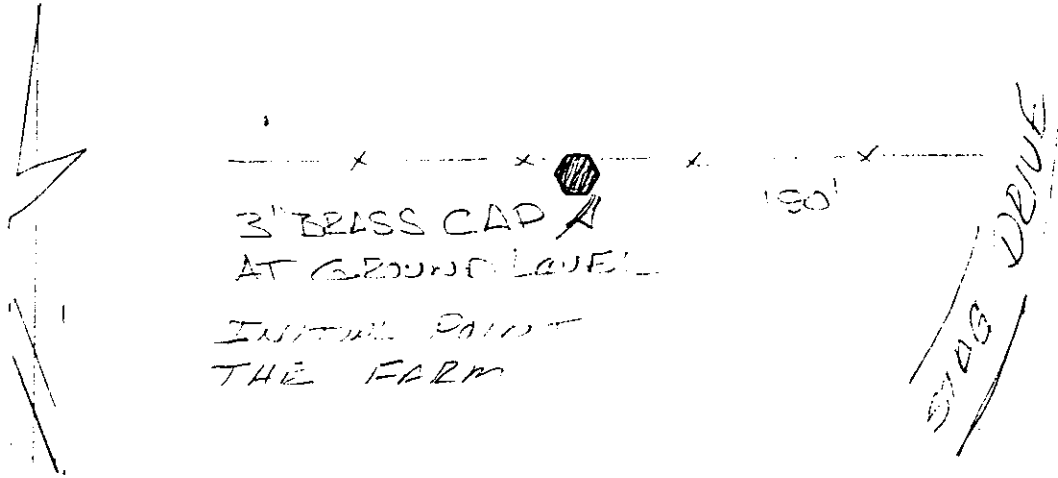 3" BRASS CAP
AT GROUND LEVEL
INITIAL POINT
THE FARM
DRIVE